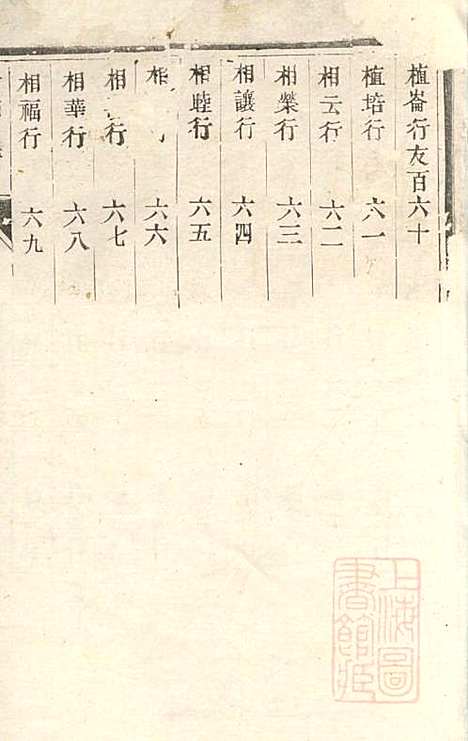 植崙行友百六十
植培行 六一
相云行 六二
相榮行 六三
相讓行 六四
相睦行 六五
相 六六
相 行 六七
相華行 六八
相福行 六九
上海圖
書館藏